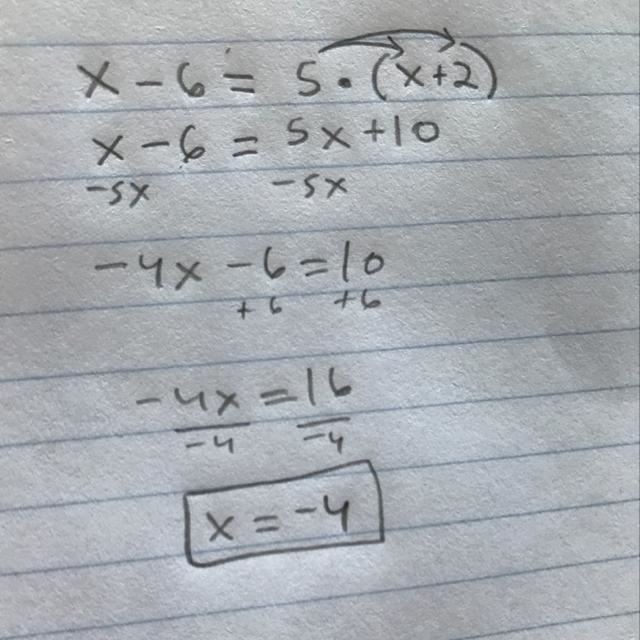 x - 6 = 5 • (x+2)
x - 6 = 5x + 10
-5x -5x
-4x - 6 = 10
+6 +6
-4x = 16
-4 -4
x = -4